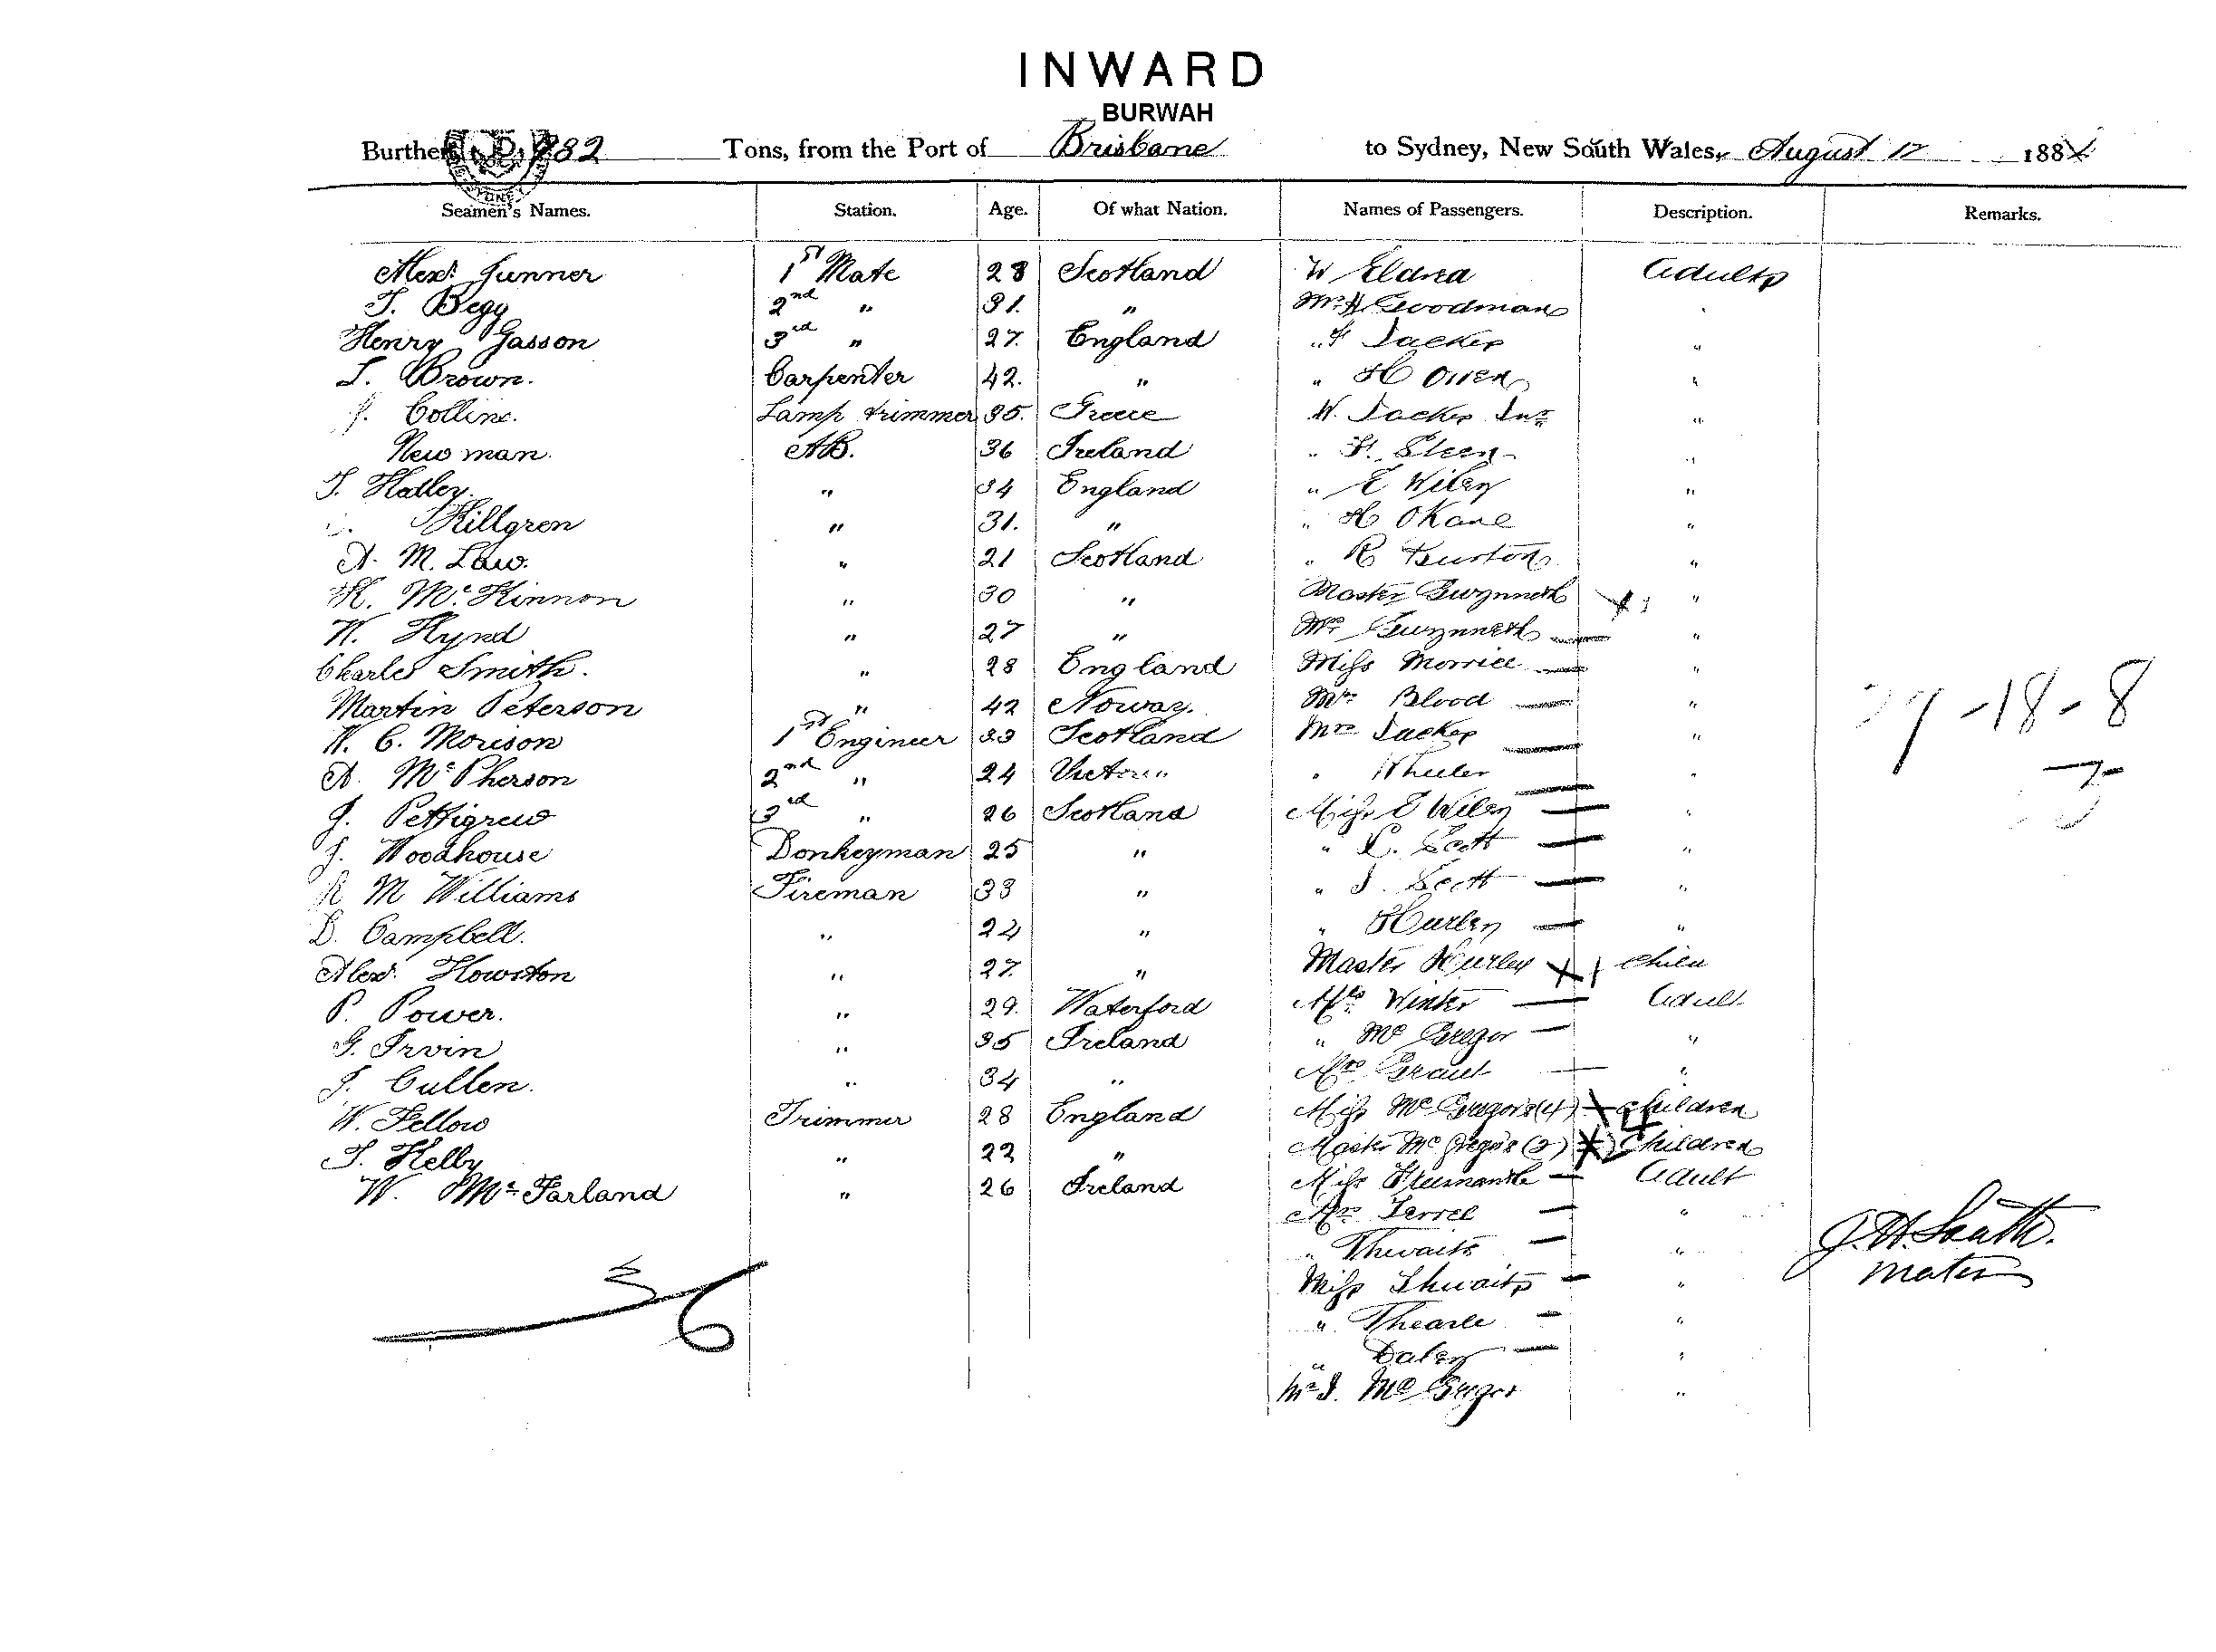 INWARD
BURWAH
Burthen 982 Tons, from the Port of Brisbane to Sydney, New South Wales, August 12 188
Seamen's Names. Station. Age. Of what Nation. Names of Passengers. Description. Remarks.
Alexr. Gunner 1st Mate 28 Scotland W Adults
T. Begg 2nd " 31. " Mr H Goodman "
Henry Gasson 3rd " 27. England " F Tucker "
T. Brown. Carpenter 42. " " H Owen "
J. Collins. Lamp trimmer 35. Greece W. Tucker Junr "
Newman. AB. 36 Ireland " Steen "
T. Hatley. " 34 England " E Wiley "
Hillgren " 31. " " H OKane "
A. M. Law. " 21 Scotland " R Burton "
K. McKinnon " 30 " Master Gwynneth "
W. Hynd " 27 " Mrs Gwynneth "
Charles Smith. " 28 England Miss Morrice "
Martin Peterson " 42 Norway. Mrs Blood "
W. C. Morison 1st Engineer 33 Scotland Mrs Tucker "
A. McPherson 2nd " 24 Victoria " Wheeler "
J. Pettigrew 3rd " 26 Scotland Miss E Wiley "
J. Woodhouse Donkeyman 25 " " L. Scott "
R M Williams Fireman 33 " " J. Scott "
D. Campbell. " 24 " " Hurley "
Alexr. Howston " 27. " Master Hurley 1 child
P. Power. " 29. Waterford Mrs Winter Adult
G. Irvin " 35 Ireland " McGregor "
J. Cullen. " 34 " Mrs Grant "
W. Fellow Trimmer 28 England Miss McGregors (4) 4 children
T. Kelby " 22 " Master McGregors (2) 2 children
W. McFarland " 26 Ireland Miss Freemantle Adult
Mrs Terrel "
" Thwaits "
Miss Thwaits "
" Thearle "
" Daley "
Mr J. McGregor "
-18-8
J. H. South.
Master
36